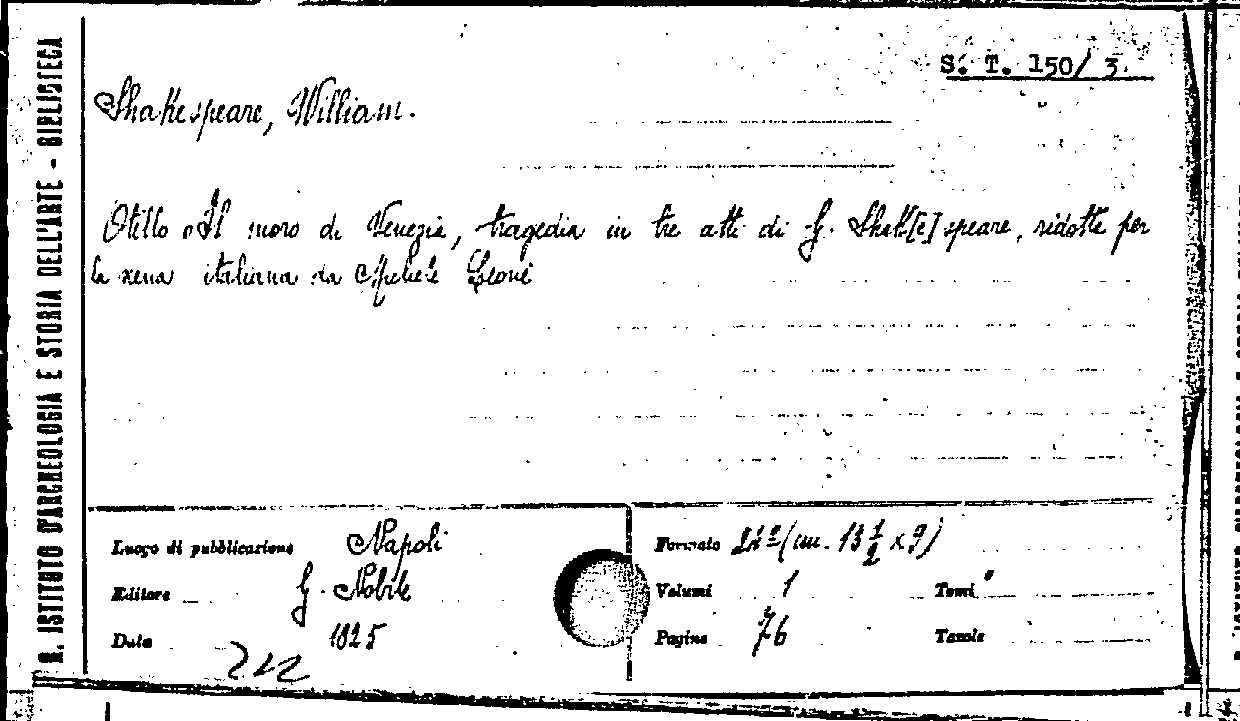 S. T. 150/ 3.
R. ISTITUTO D'ARCHEOLOGIA E STORIA DELL'ARTE - BIBLIOTECA
Shakespeare, William.
Otello o Il moro di Venezia, tragedia in tre atti di G. Shak[e]speare, ridotta per
la scena italiana da Michele Leoni
Luogo di pubblicazione Napoli
Editore G. Nobile
Data 1825
Formato 24º (cm. 13 1/2 x 9)
Volumi 1 Tomi
Pagine 76 Tavole